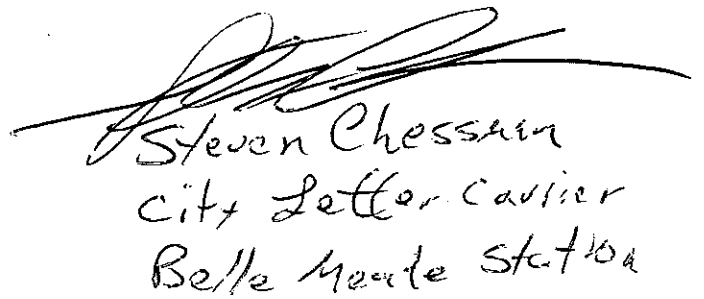 Steven Chessman
City Letter Carrier
Belle Meade Station